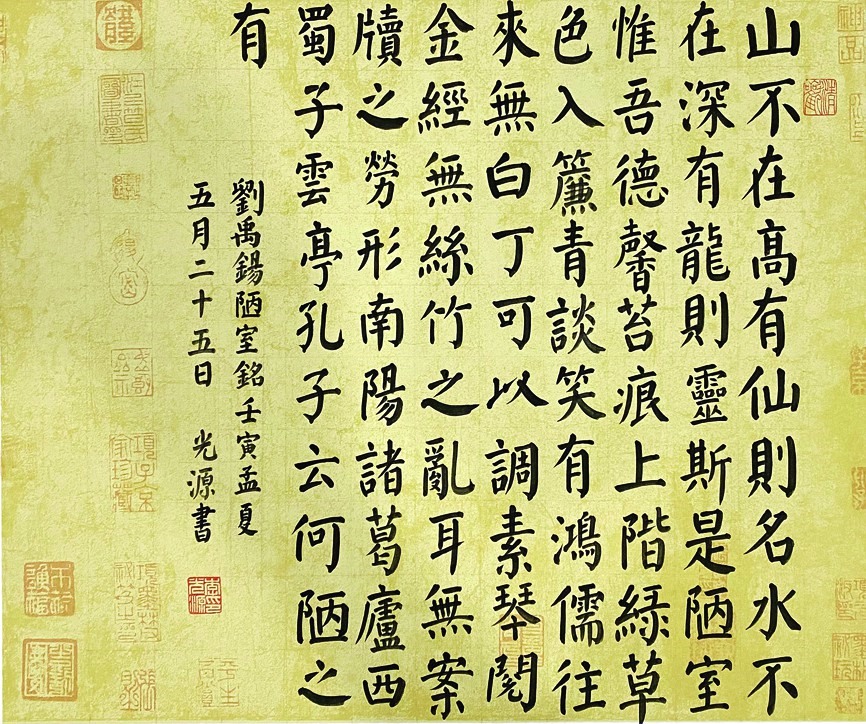 山不在高有仙則名水不
在深有龍則靈斯是陋室
惟吾德馨苔痕上階綠草
色入簾青談笑有鴻儒往
來無白丁可以調素琴閱
金經無絲竹之亂耳無案
牘之勞形南陽諸葛廬西
蜀子雲亭孔子云何陋之
有
劉禹錫陋室銘壬寅孟夏
五月二十五日 光源書